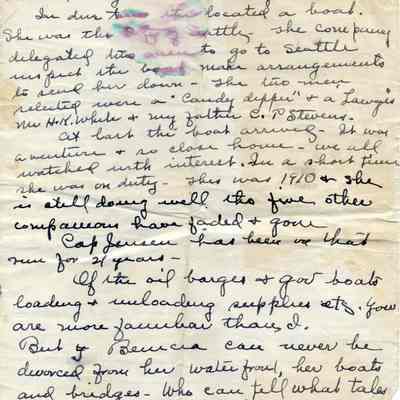 In due time the located a boat.
She was the City of Seattle, the company
delegated two men to go to Seattle
inspect the boat make arrangements
to send her down - The two men
selected were a "Candy dipper" & a Lawyer
Mr H.K. White & my father C. P. Stevens.
At last the boat arrived - It was
a venture & so close home - we all
watched with interest. In a short time
she was on duty. This was 1910 & she
is still doing well tho five other
companions have faded & gone
Cap Jensen has been on that
run for 21 years -
Of the oil barges & gov boats
loading & unloading supplies etc. You
are more familiar than I.
But Benicia can never be
divorced from her water front, her boats
and bridges - Who can tell what tales